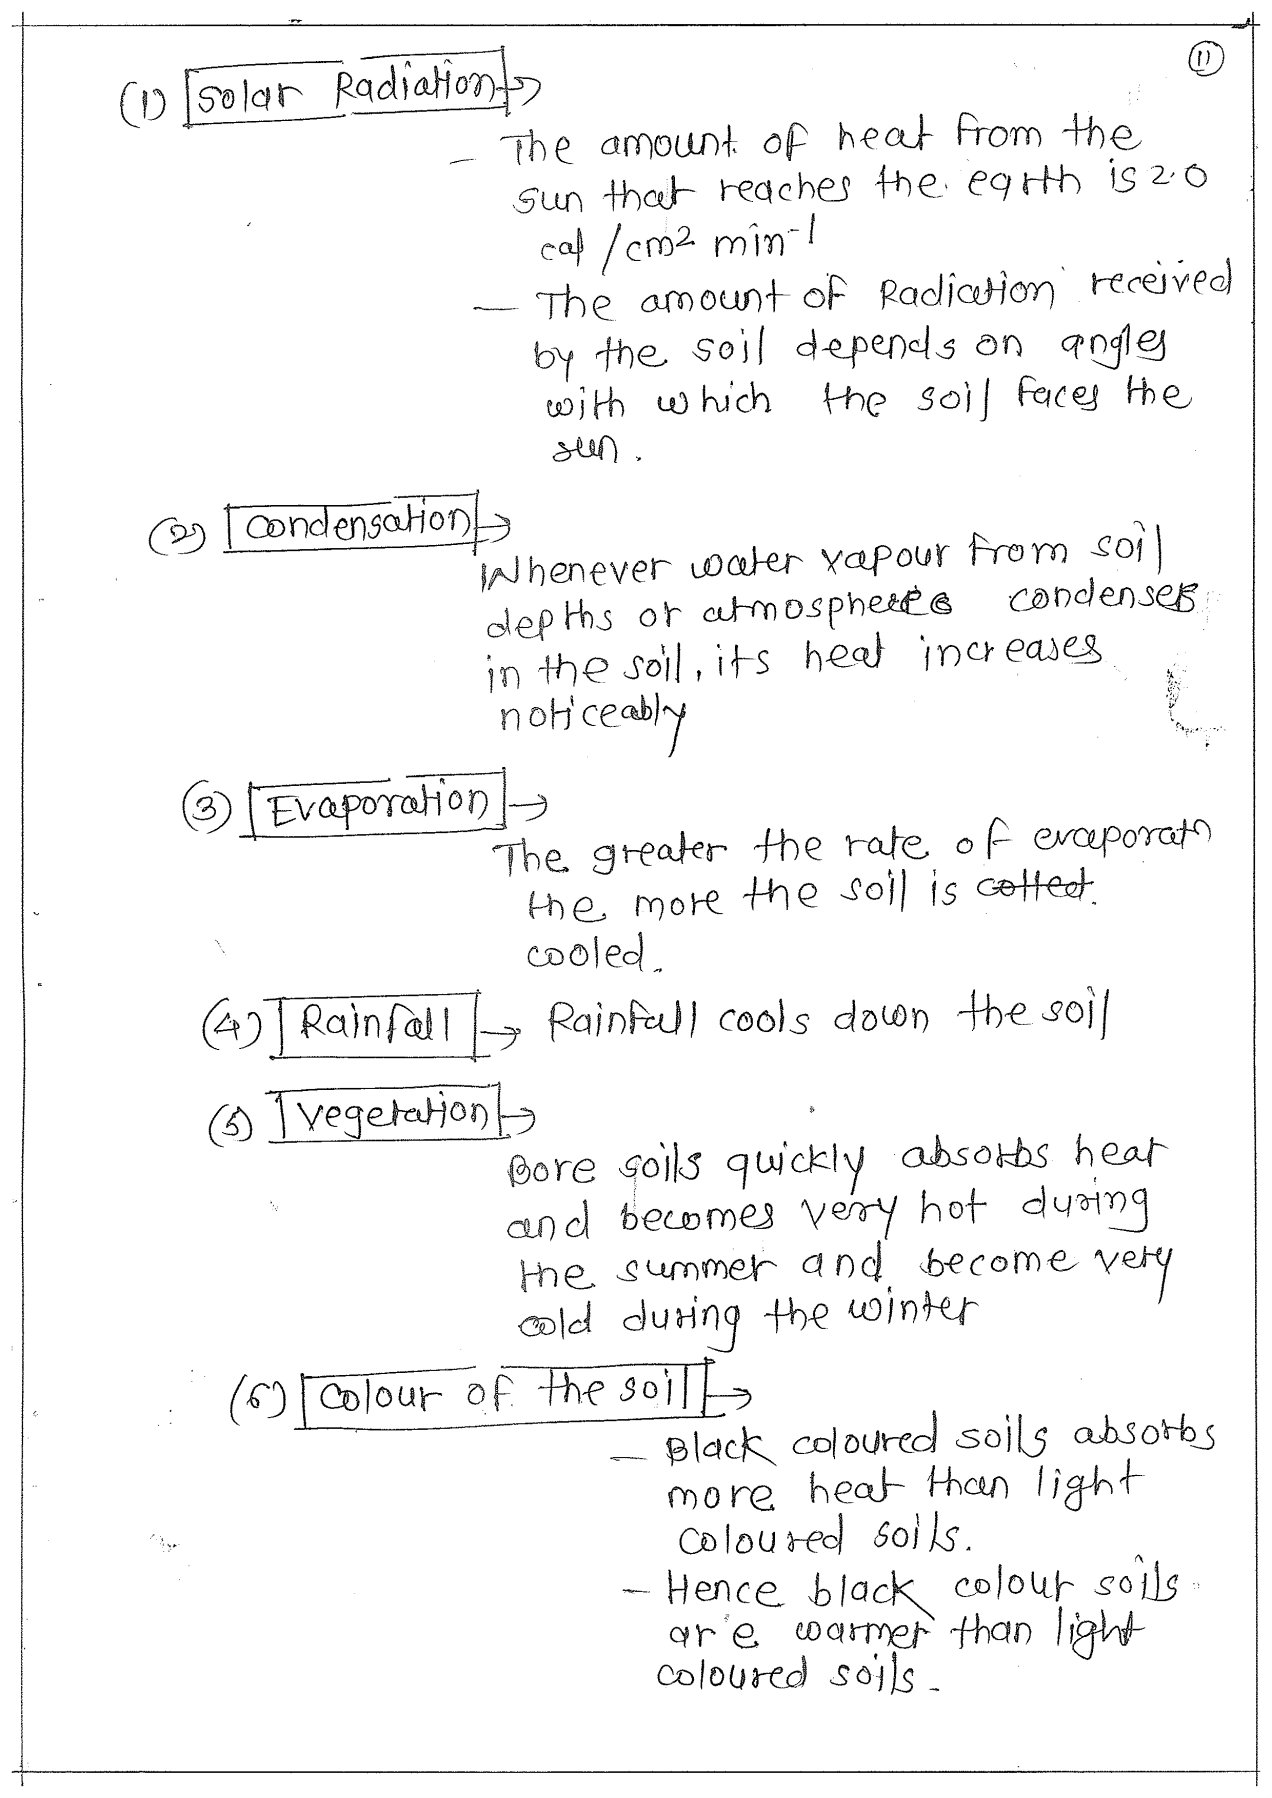 11
(1) Solar Radiation →
- The amount of heat from the
sun that reaches the earth is 2.0
cal /cm2 min-1
- The amount of Radiation received
by the soil depends on angles
with which the soil faces the
sun.
(2) Condensation →
Whenever water vapour from soil
depths or atmospheres condenses
in the soil, its heat increases
noticeably
(3) Evaporation →
The greater the rate of evaporatn
the more the soil is
cooled.
(4) Rainfall → Rainfall cools down the soil
(5) Vegetation →
Bore soils quickly absorbs heat
and becomes very hot during
the summer and become very
cold during the winter
(6) Colour of the soil →
- Black coloured soils absorbs
more heat than light
coloured soils.
- Hence black colour soils
are warmer than light
coloured soils.